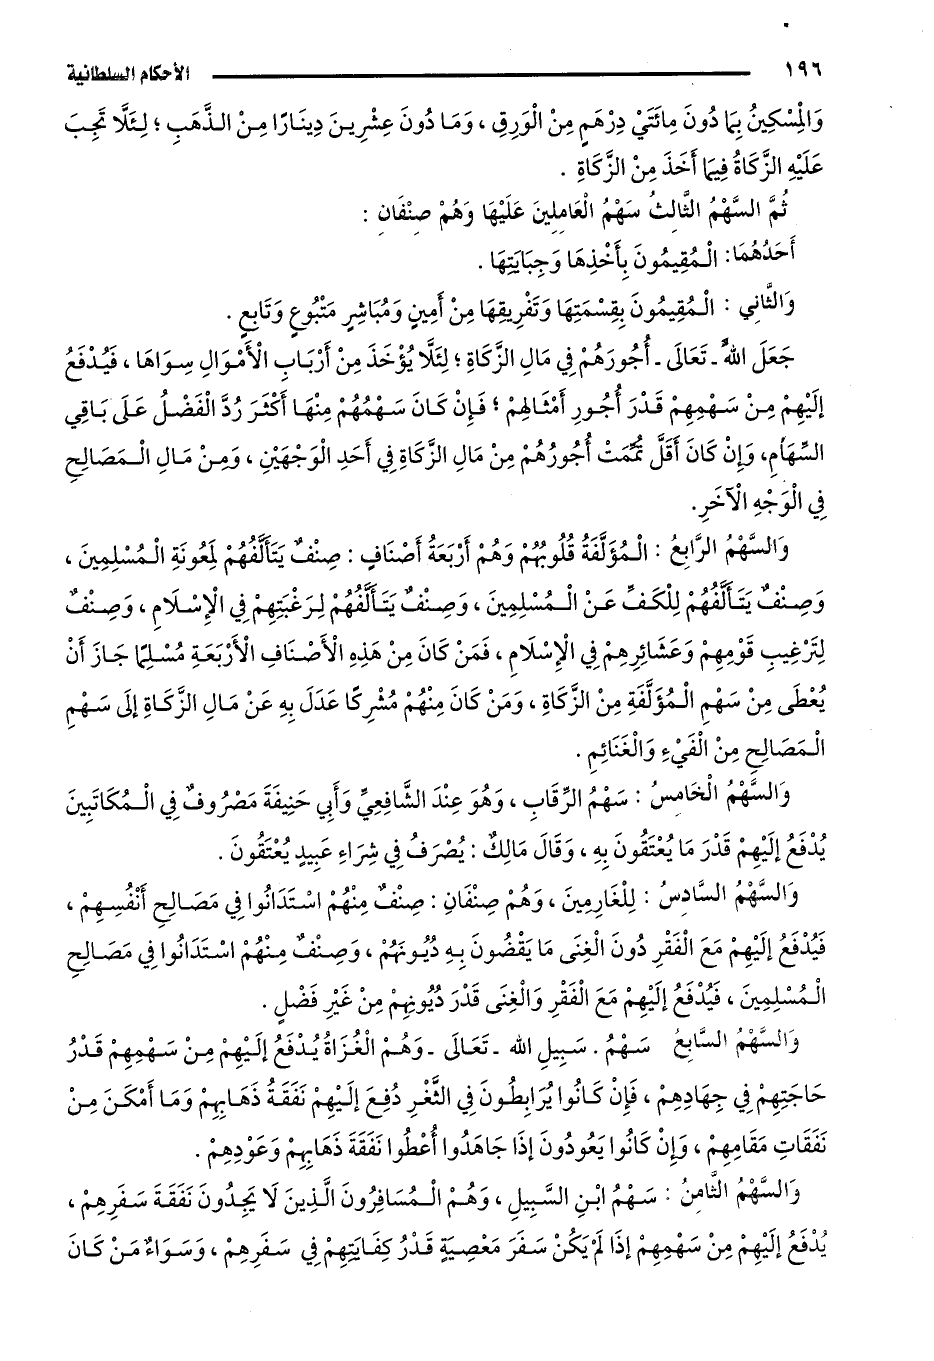 ١٩٦ الأحكام السلطانية
وَالْمِسْكِينُ بِمَا دُونَ مِائَتَيْ دِرْهَمٍ مِنْ الْوَرِقِ ، وَمَا دُونَ عِشْرِينَ دِينَارًا مِنْ الذَّهَبِ ؛ لِئَلَّا تَجِبَ
عَلَيْهِ الزَّكَاةُ فِيمَا أَخَذَ مِنْ الزَّكَاةِ .
ثُمَّ السَّهْمُ الثَّالِثُ سَهْمُ الْعَامِلِينَ عَلَيْهَا وَهُمْ صِنْفَانِ :
أَحَدُهُمَا: الْمُقِيمُونَ بِأَخْذِهَا وَجِبَايَتِهَا .
وَالثَّانِي : الْمُقِيمُونَ بِقِسْمَتِهَا وَتَفْرِيقِهَا مِنْ أَمِينٍ وَمُبَاشِرٍ مَتْبُوعٍ وَتَابِعٍ .
جَعَلَ اللهُ ـ تَعَالَى ـ أُجُورَهُمْ فِي مَالِ الزَّكَاةِ ؛ لِئَلَّا يُؤْخَذَ مِنْ أَرْبَابِ الْأَمْوَالِ سِوَاهَا ، فَيُدْفَعُ
إلَيْهِمْ مِنْ سَهْمِهِمْ قَدْرَ أُجُورِ أَمْثَالِهِمْ ؛ فَإِنْ كَانَ سَهْمُهُمْ مِنْهَا أَكْثَرَ رُدَّ الْفَضْلُ عَلَى بَاقِي
السِّهَامِ، وَإِنْ كَانَ أَقَلَّ تُمِّمَتْ أُجُورُهُمْ مِنْ مَالِ الزَّكَاةِ فِي أَحَدِ الْوَجْهَيْنِ ، وَمِنْ مَالِ الْمَصَالِحِ
فِي الْوَجْهِ الْآخَرِ.
وَالسَّهْمُ الرَّابِعُ : الْمُؤَلَّفَةُ قُلُوبُهُمْ وَهُمْ أَرْبَعَةُ أَصْنَافٍ : صِنْفٌ يَتَأَلَّفُهُمْ لِمَعُونَةِ الْمُسْلِمِينَ ،
وَصِنْفٌ يَتَأَلَّفُهُمْ لِلْكَفِّ عَنْ الْمُسْلِمِينَ ، وَصِنْفٌ يَتَأَلَّفُهُمْ لِرَغْبَتِهِمْ فِي الْإِسْلَامِ ، وَصِنْفٌ
لِتَرْغِيبِ قَوْمِهِمْ وَعَشَائِرِهِمْ فِي الْإِسْلَامِ ، فَمَنْ كَانَ مِنْ هَذِهِ الْأَصْنَافِ الْأَرْبَعَةِ مُسْلِمًا جَازَ أَنْ
يُعْطَى مِنْ سَهْمِ الْمُؤَلَّفَةِ مِنْ الزَّكَاةِ ، وَمَنْ كَانَ مِنْهُمْ مُشْرِكًا عَدَلَ بِهِ عَنْ مَالِ الزَّكَاةِ إلَى سَهْمِ
الْمَصَالِحِ مِنْ الْفَيْءِ وَالْغَنَائِمِ .
وَالسَّهْمُ الْخَامِسُ : سَهْمُ الرِّقَابِ ، وَهُوَ عِنْدَ الشَّافِعِيِّ وَأَبِي حَنِيفَةَ مَصْرُوفٌ فِي الْمُكَاتَبِينَ
يُدْفَعُ إلَيْهِمْ قَدْرَ مَا يُعْتَقُونَ بِهِ ، وَقَالَ مَالِكٌ : يُصْرَفُ فِي شِرَاءِ عَبِيدٍ يُعْتَقُونَ .
وَالسَّهْمُ السَّادِسُ : لِلْغَارِمِينَ ، وَهُمْ صِنْفَانِ : صِنْفٌ مِنْهُمْ اسْتَدَانُوا فِي مَصَالِحِ أَنْفُسِهِمْ ،
فَيُدْفَعُ إلَيْهِمْ مَعَ الْفَقْرِ دُونَ الْغِنَى مَا يَقْضُونَ بِهِ دُيُونَهُمْ ، وَصِنْفٌ مِنْهُمْ اسْتَدَانُوا فِي مَصَالِحِ
الْمُسْلِمِينَ ، فَيُدْفَعُ إلَيْهِمْ مَعَ الْفَقْرِ وَالْغِنَى قَدْرَ دُيُونِهِمْ مِنْ غَيْرِ فَضْلٍ .
وَالسَّهْمُ السَّابِعُ سَهْمُ . سَبِيلِ الله ـ تَعَالَى ـ وَهُمْ الْغُزَاةُ يُدْفَعُ إلَيْهِمْ مِنْ سَهْمِهِمْ قَدْرُ
حَاجَتِهِمْ فِي جِهَادِهِمْ ، فَإِنْ كَانُوا يُرَابِطُونَ فِي الثَّغْرِ دُفِعَ إلَيْهِمْ نَفَقَةُ ذَهَابِهِمْ وَمَا أَمْكَنَ مِنْ
نَفَقَاتِ مَقَامِهِمْ ، وَإِنْ كَانُوا يَعُودُونَ إذَا جَاهَدُوا أُعْطُوا نَفَقَةَ ذَهَابِهِمْ وَعَوْدِهِمْ .
وَالسَّهْمُ الثَّامِنُ : سَهْمُ ابْنِ السَّبِيلِ ، وَهُمْ الْمُسَافِرُونَ الَّذِينَ لَا يَجِدُونَ نَفَقَةَ سَفَرِهِمْ ،
يُدْفَعُ إلَيْهِمْ مِنْ سَهْمِهِمْ إذَا لَمْ يَكُنْ سَفَرَ مَعْصِيَةٍ قَدْرُ كِفَايَتِهِمْ فِي سَفَرِهِمْ ، وَسَوَاءٌ مَنْ كَانَ